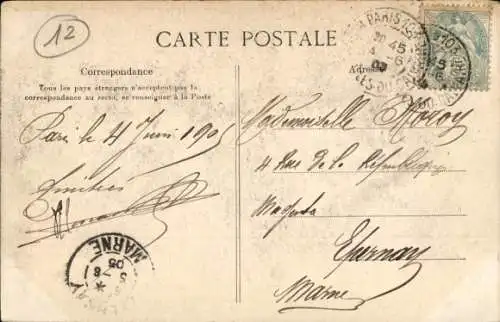 12
CARTE POSTALE
Correspondance
Tous les pays étrangers n'acceptent pas la
correspondance au recto, se renseigner à la Poste
Adresse
PARIS
45
6
Paris le 4 Juin 190
Amitiés
Mademoiselle
4 Rue de la République
Magenta
Epernay
Marne
MARNE
7 6
05